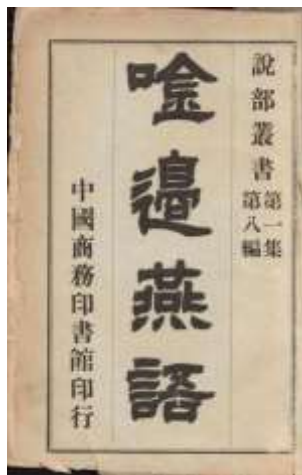 說部叢書
第一集
第八編
唫邊燕語
中國商務印書館印行